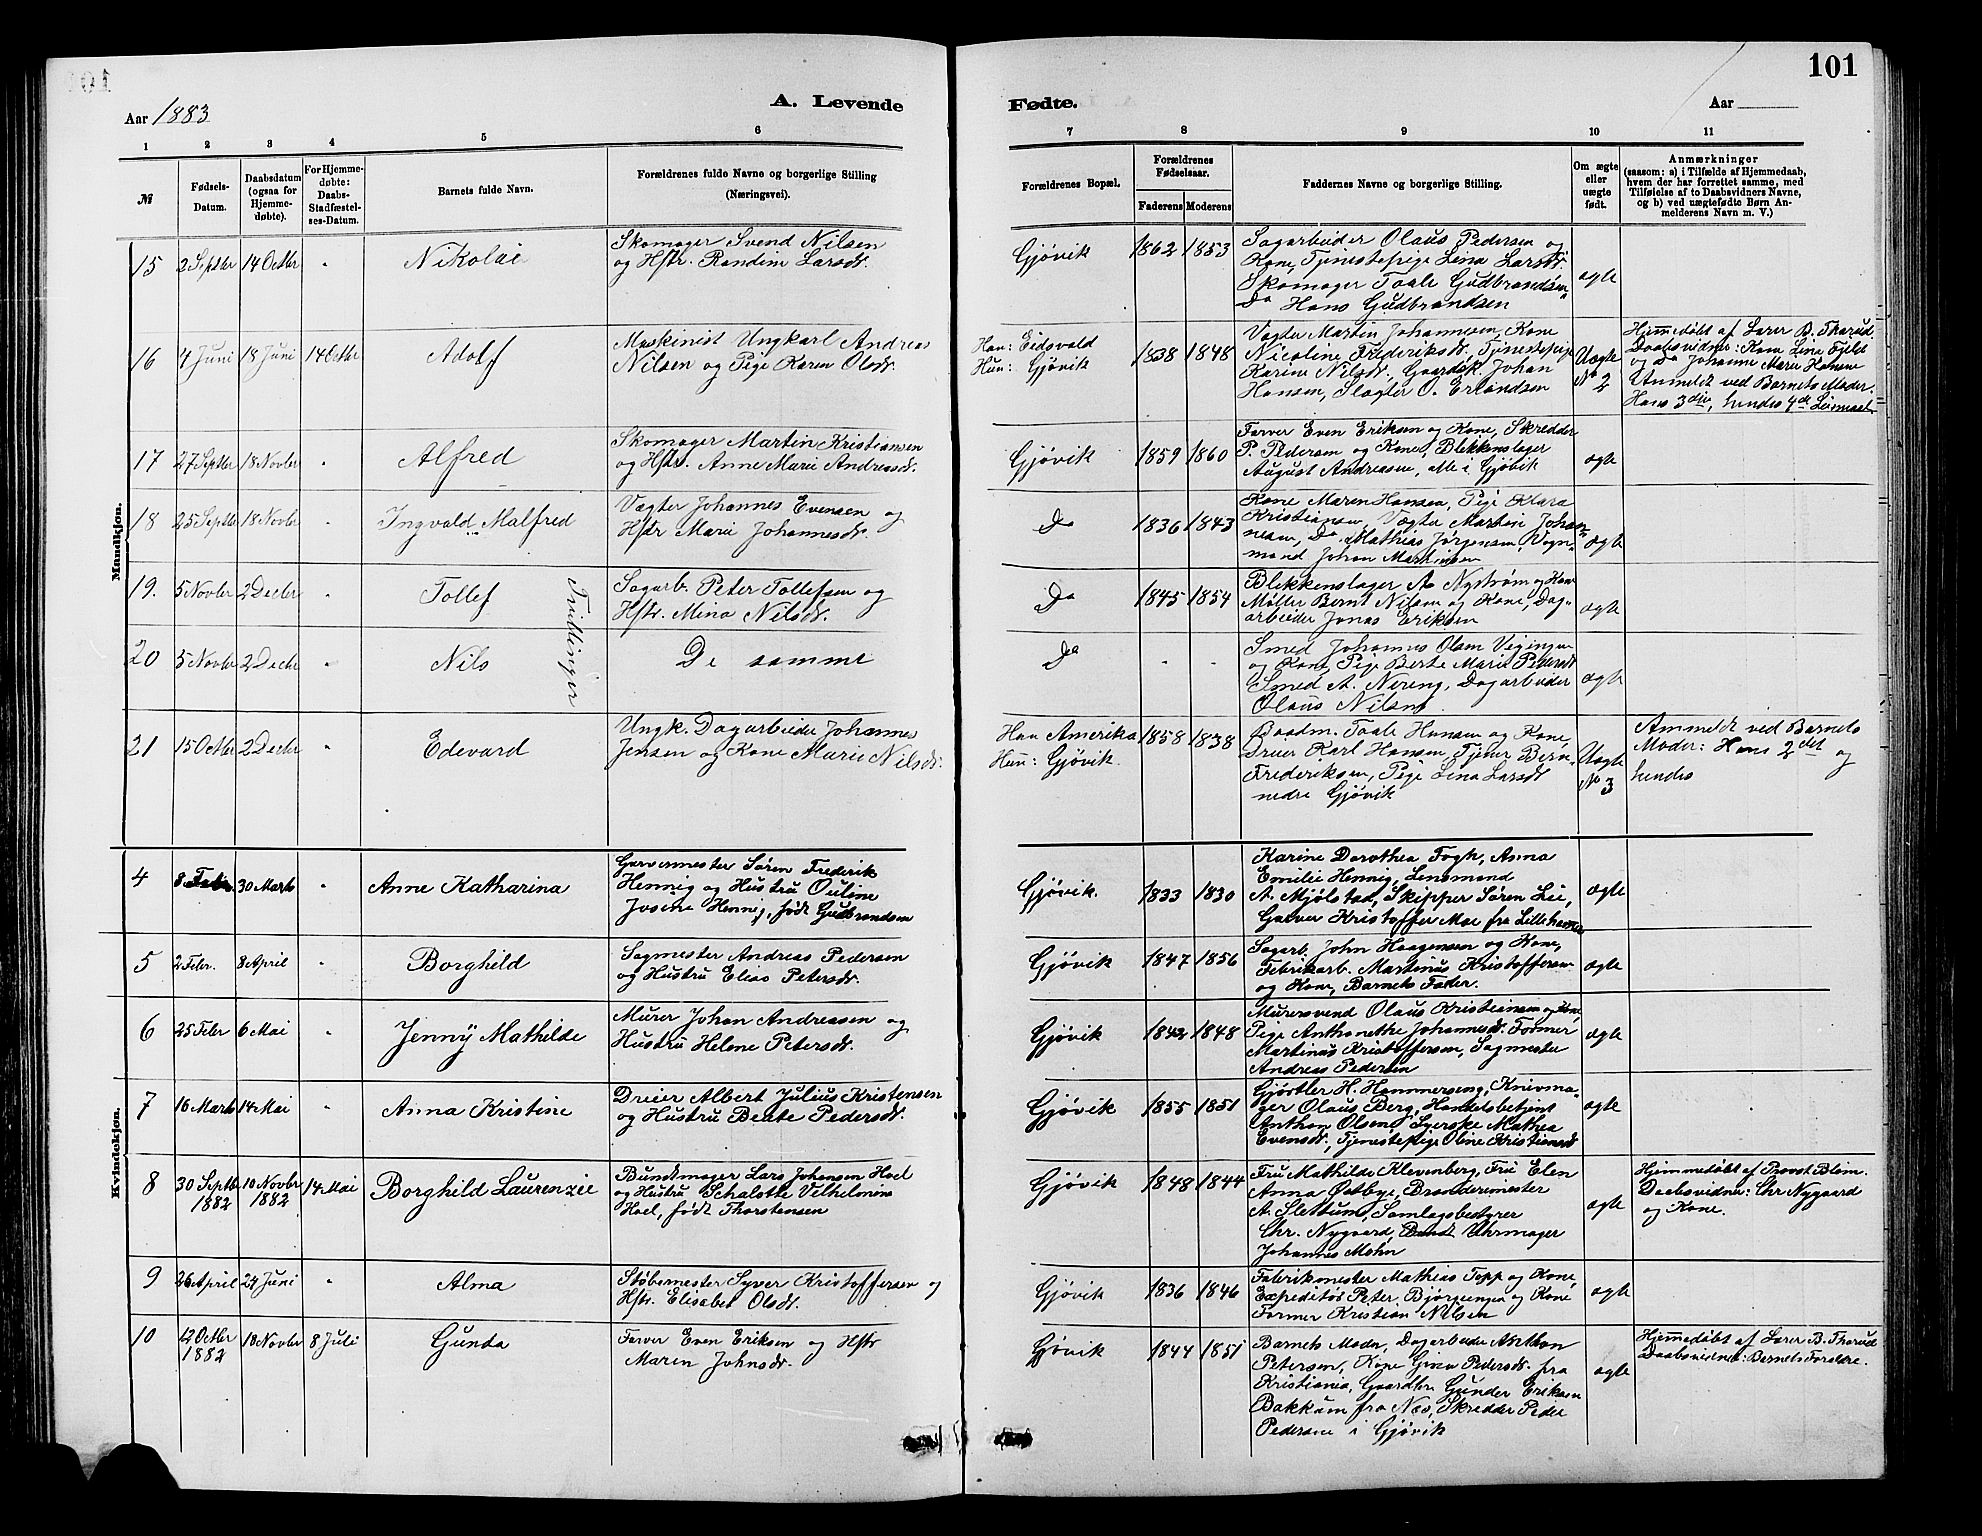 101
Aar 1883
A. Levende
Fødte.
Aar
1
2
3
4
5
6
7
8
9
10
11
№
Fødsels-
Datum.
Daabsdatum
(ogsaa for
Hjemme-
døbte).
For Hjemme-
døbte:
Daabs-
Stadfæstel-
ses-Datum.
Barnets fulde Navn.
Forældrenes fulde Navne og borgerlige Stilling
(Næringsvei).
Forældrenes Bopæl.
Forældrenes
Fødselsaar.
Faderens
Moderens
Faddernes Navne og borgerlige Stilling.
Om ægte
eller
uægte
født.
Anmærkninger
(saasom: a) i Tilfælde af Hjemmedaab,
hvem der har forrettet samme, med
Tilføielse af to Daabsvidners Navne,
og b) ved uægtefødte Børn An-
melderens Navn m. V.)
Mandkjøn.
15 2 Septbr 14 Octbr " Nikolai
Skomager Svend Nilsen
og Hstr. Randine Larsdt.
Gjøvik 1862 1853
Sagarbeider Olaus Pedersen og
Kone, Tjenestepige Lina Larsdt.
Skomager Taale Gudbrandsen
Do Hans Gudbrandsen
ægte
16 4 Juni 18 Juni 14 Octbr Adolf
Maskinist Ungkarl Andreas
Nilsen og Pige Karen Olsdt.
Han: Eidsvold
Hun: Gjøvik
1838 1848
Vægter Martin Johannesen, Kone
Nicoline Frederiksdt, Tjenestepige
Karine Nilsdt. Gaardsk. Johan
Hansen, Slagter O. Erlandsen
Uægte
No 2
Hjemmedøbt af Lærer B. Tharud.
Daabsvidner: Kone Lina Fjeld
og Do Johanne Marie Hansen
Anmeldt ved Barnets Moder.
Hans 3die, hendes 4de Leiermaal
17 27 Septbr 18 Novbr " Alfred
Skomager Martin Kristiansen
og Hstr. Anne Marie Andreasdt.
Gjøvik 1859 1860
Farver Even Eriksen og Kone, Skredder
P. Pedersen og Kone, Blikkenslager
August Andreasen, alle i Gjøvik
ægte
18 25 Septbr 18 Novbr " Ingvald Malfred
Vægter Johannes Evensen og
Hstr Marie Johannesdt.
Do 1836 1843
Kone Maren Hansen, Pige Klara
Kristiansen, Vægter Martin Johan-
nesen, Do Mathias Jørgensen, Vogn-
mand Johan Martinsen
ægte
19. 5 Novbr 2 Decbr " Tollef
Tvillinger
Sagarb. Peter Tollefsen og
Hstr. Mina Nilsdt.
Do 1845 1854
Blikkenslager A. Nystrøm og Kone
Møller Bernt Nilsen og Kone, Dag-
arbeider Jonas Eriksen
ægte
20 5 Novbr 2 Decbr " Nils
De samme
Do " "
Smed Johannes Olsen
og Kone, Pige Berte Marie Pedersdt
Smed A. Nereng, Dagarbeider
Olaus Nilsen
ægte
21 15 Octbr 2 Decbr Edevard
Ungk. Dagarbeider Johannes
Jensen og Kone Marie Nilsdt.
Han Amerika
Hun: Gjøvik.
1858 1838
Baadm. Taale Hansen og Kone,
Dreier Karl Hansen, Tjener Bernt
Frederiksen, Pige Lina Larsdt
nedre Gjøvik
Uægte
No 3
Anmeldt ved Barnets
Moder: Hans 2det og
hendes
Kvindekjøn.
4 8 Febr. 30 Marts " Anne Katharina
Garvermester Søren Frederik
Hennig og Hustru Ouline
Josine Hennig, født Gudbrandsen
Gjøvik. 1833 1830
Karine Dorothea Fogh, Anna
Emilie Hennig, Lensmand
A. Mjølstad, Skipper Søren Lie,
Garver Kristoffer Moe fra Lillehammer
ægte
5 2 Febr. 8 April " Borghild
Sagmester Andreas Pedersen
og Hustru Elias Petersdt.
Gjøvik 1847 1856
Sagarb. John Haagensen og Kone,
Fabrikarb. Martinus Kristoffersen
og Kone, Barnets Fader.
ægte
6 25 Febr 6 Mai " Jenny Mathilde
Murer Johan Andreasen og
Hustru Helene Petersdt.
Gjøvik 1842 1848
Murersvend Olaus Kristiansen og Kone,
Pige Anthonethe Johannesdt. Former
Martinus Kristoffersen, Sagmester
Andreas Pedersen
ægte
7 16 Marts 14 Mai " Anna Kristine
Dreier Albert Julius Kristensen
og Hustru Beate Pedersdt.
Gjøvik 1855 1851
Gjørtler H. Hammerseng, Knivma-
ger Olaus Berg, Handelsbetjent
Anthon Olsen, Syerske Mathea
Evensdt, Tjenestepige Oline Kristiansdt
ægte
8 30 Septbr 1882 10 Novbr 1882 14 Mai Borghild Laurenzie
Bundtmager Lars Johansen Hoel
og Hustru Schalotte Vilhelmine
Hoel, født Thorstensen
Gjøvik 1848 1844
Fru Mathilde Klevenberg, Fru Elen
Anna Østbye, Brænderimester
A. Slettum, Samlagsbestyrer
Chr. Nygaard, Uhrmager
Johannes Mohn
ægte
Hjemmedøbt af Provst Blom.
Daabsvidner: Chr Nygaard
og Kone.
9 26 April 24 Juni " Alma
Støbemester Syver Kristoffersen og
Hstr. Elisabet Olsdt.
Gjøvik 1836 1846
Fabrikmester Mathias Topp og Kone,
Expeditør Peter Bjørgeengen og Kone
Former Kristian Nilsen
ægte
10 12 Octbr 1882 18 Novbr 8 Juli Gunda
Farver Even Eriksen og Hstr
Maren Johnsdt.
Gjøvik 1844 1851
Barnets Moder, Dagarbeider Anthon
Petersen, Kone Gina Pedersdt. fra
Kristiania, Gaardbr. Gunder Eriksen
Bakkum fra Næs, Skredder Peder
Pedersen i Gjøvik
ægte
Hjemmedøbt af Lærer B. Tharud
Daabsvidner: Barnets Forældre.